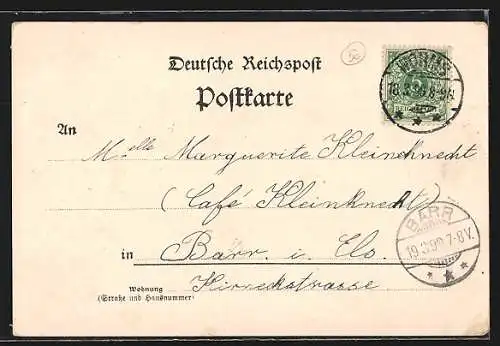 Deutsche Reichspost
Postkarte
An Mlle Marguerite Kleinknecht
(Café Kleinknecht)
in Barr i. Els.
Wohnung
(Straße und Hausnummer)
Kirneckstrasse
WORMS
BARR
19.3.99.7-8V.